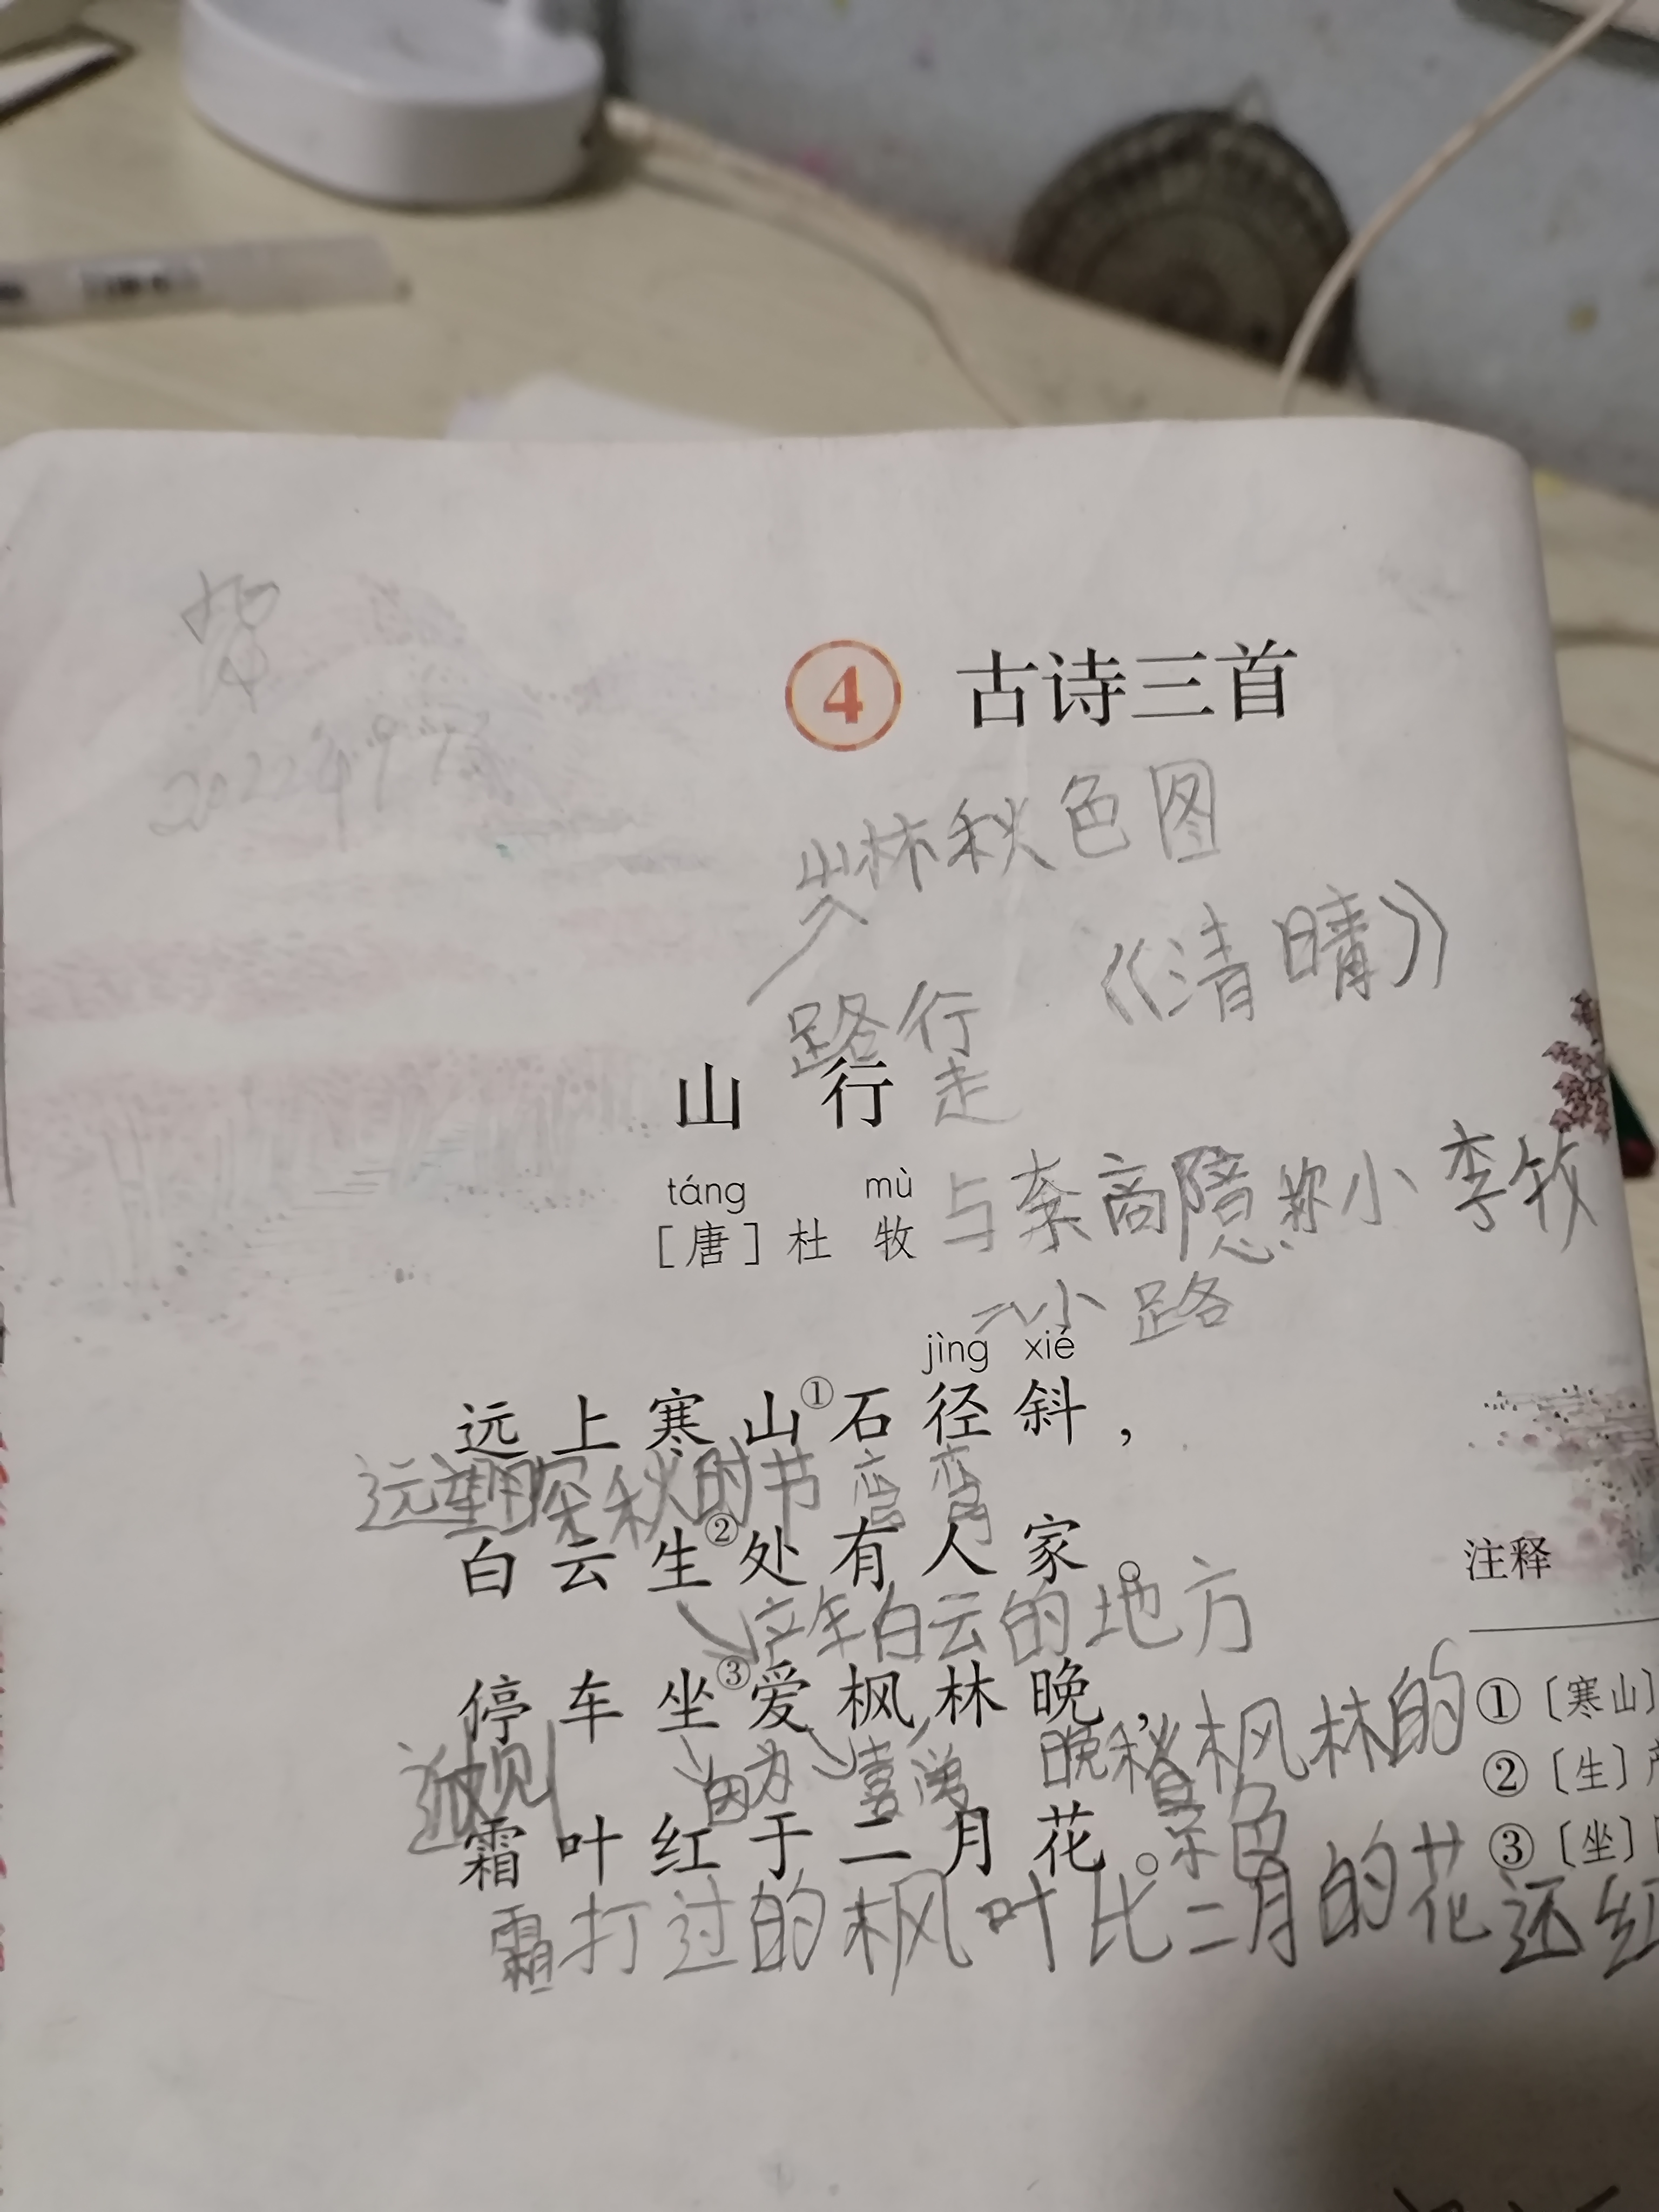 4 古诗三首
山林秋色图
《清晴》
路行
山行
走
táng mù
[唐]杜牧
与李商隐称小李牧
小路
jìng xié
远上寒山①石径斜，
远望 深秋时节 弯弯
白云生②处有人家。
产生白云的地方
停车坐③爱枫林晚，
近观 因为 喜爱 晚秋枫林的
景色
霜叶红于二月花。
霜打过的枫叶比二月的花还红
注释
①〔寒山〕
②〔生〕产
③〔坐〕